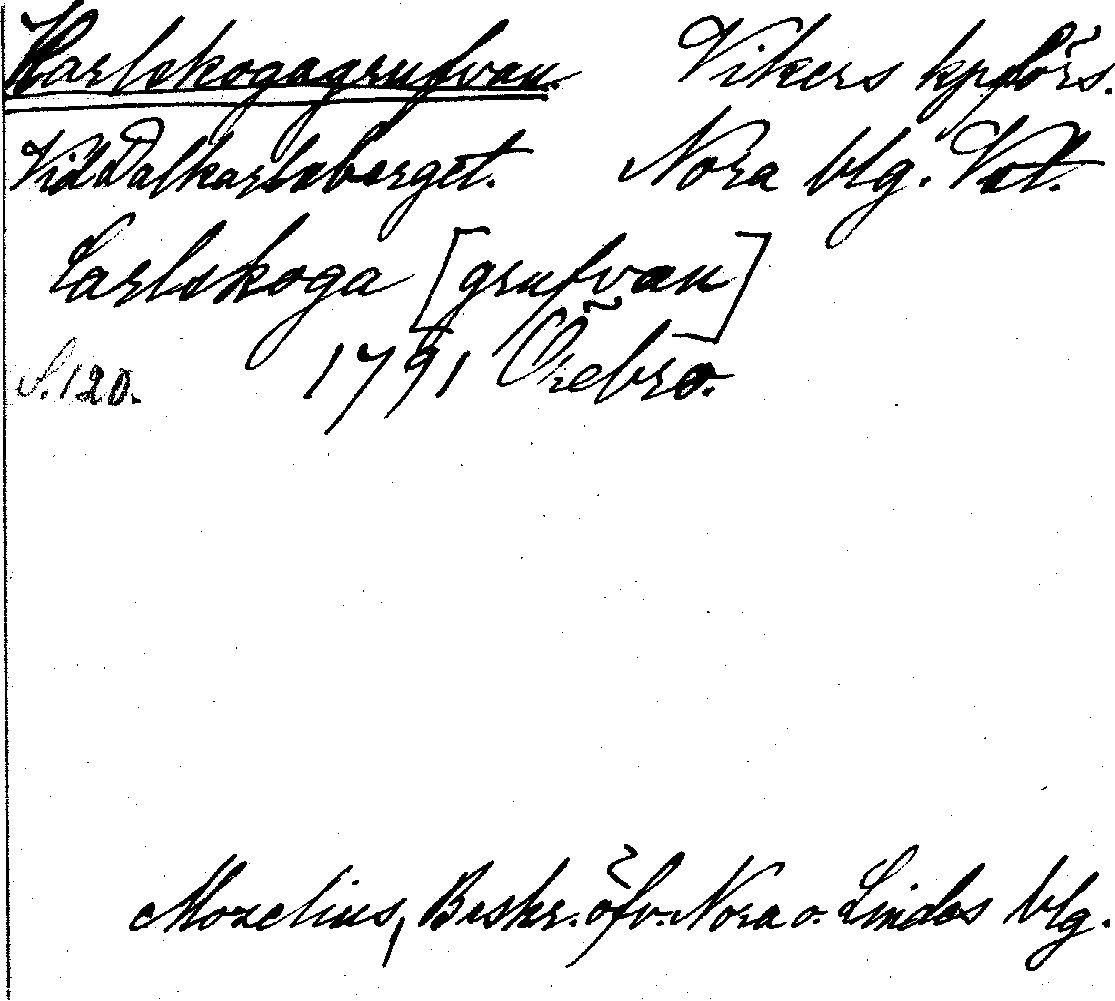 Karlskogagrufvan. Vikers kpförs.
Vid Dalkarlsberget. Nora blg. Vstl.
Carlskoga [grufvan]
S. 120. 1791 Örebro.
Mozelius, Beskr. öfv. Nora o. Lindes blg.